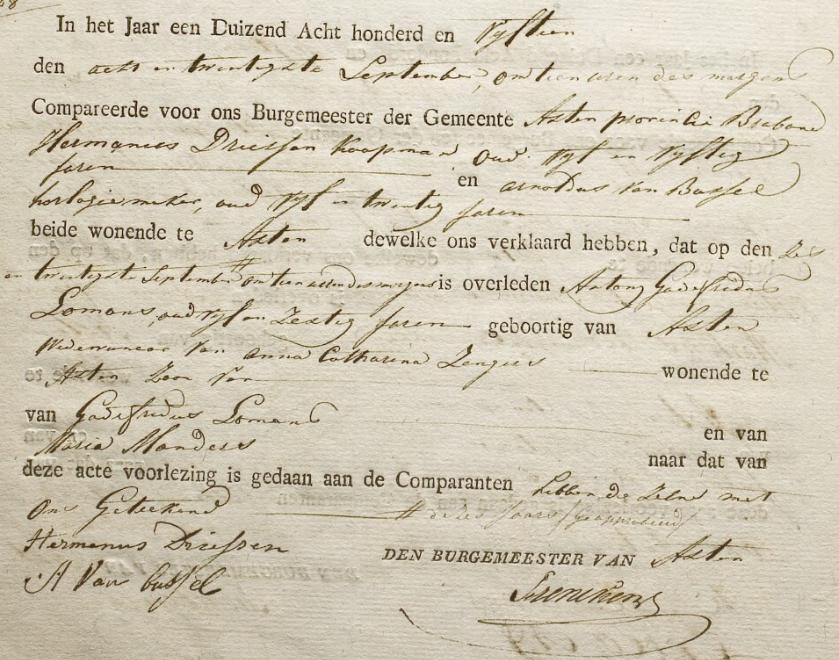 In het Jaar een Duizend Acht honderd en vyftien
den acht en twentigste September, om tien uren des morgens
Compareerde voor ons Burgemeester der Gemeente Asten provincie Braband
Hermanus Driessen Koopman Oud vyf en vyftig
jaren en Arnoldus van Bussel
horlogiemaker, oud vyf en twentig jaren
beide wonende te Asten dewelke ons verklaard hebben, dat op den Zes
en twentigste September # om tien uren des morgens is overleden Antony Godefridus
Lomans, oud vyf en Zestig jaren geboortig van Asten
Wedervaar van Anna Catharina Zengers wonende te
Asten Zoon van
van Godefridus Lomans en van
Maria Manders naar dat van
deze acte voorlezing is gedaan aan de Comparanten hebben de Zelve met
Ons Geteekend # dezes jaars geapprobeerd
Hermenus Driessen DEN BURGEMEESTER VAN Asten
A Van bussel